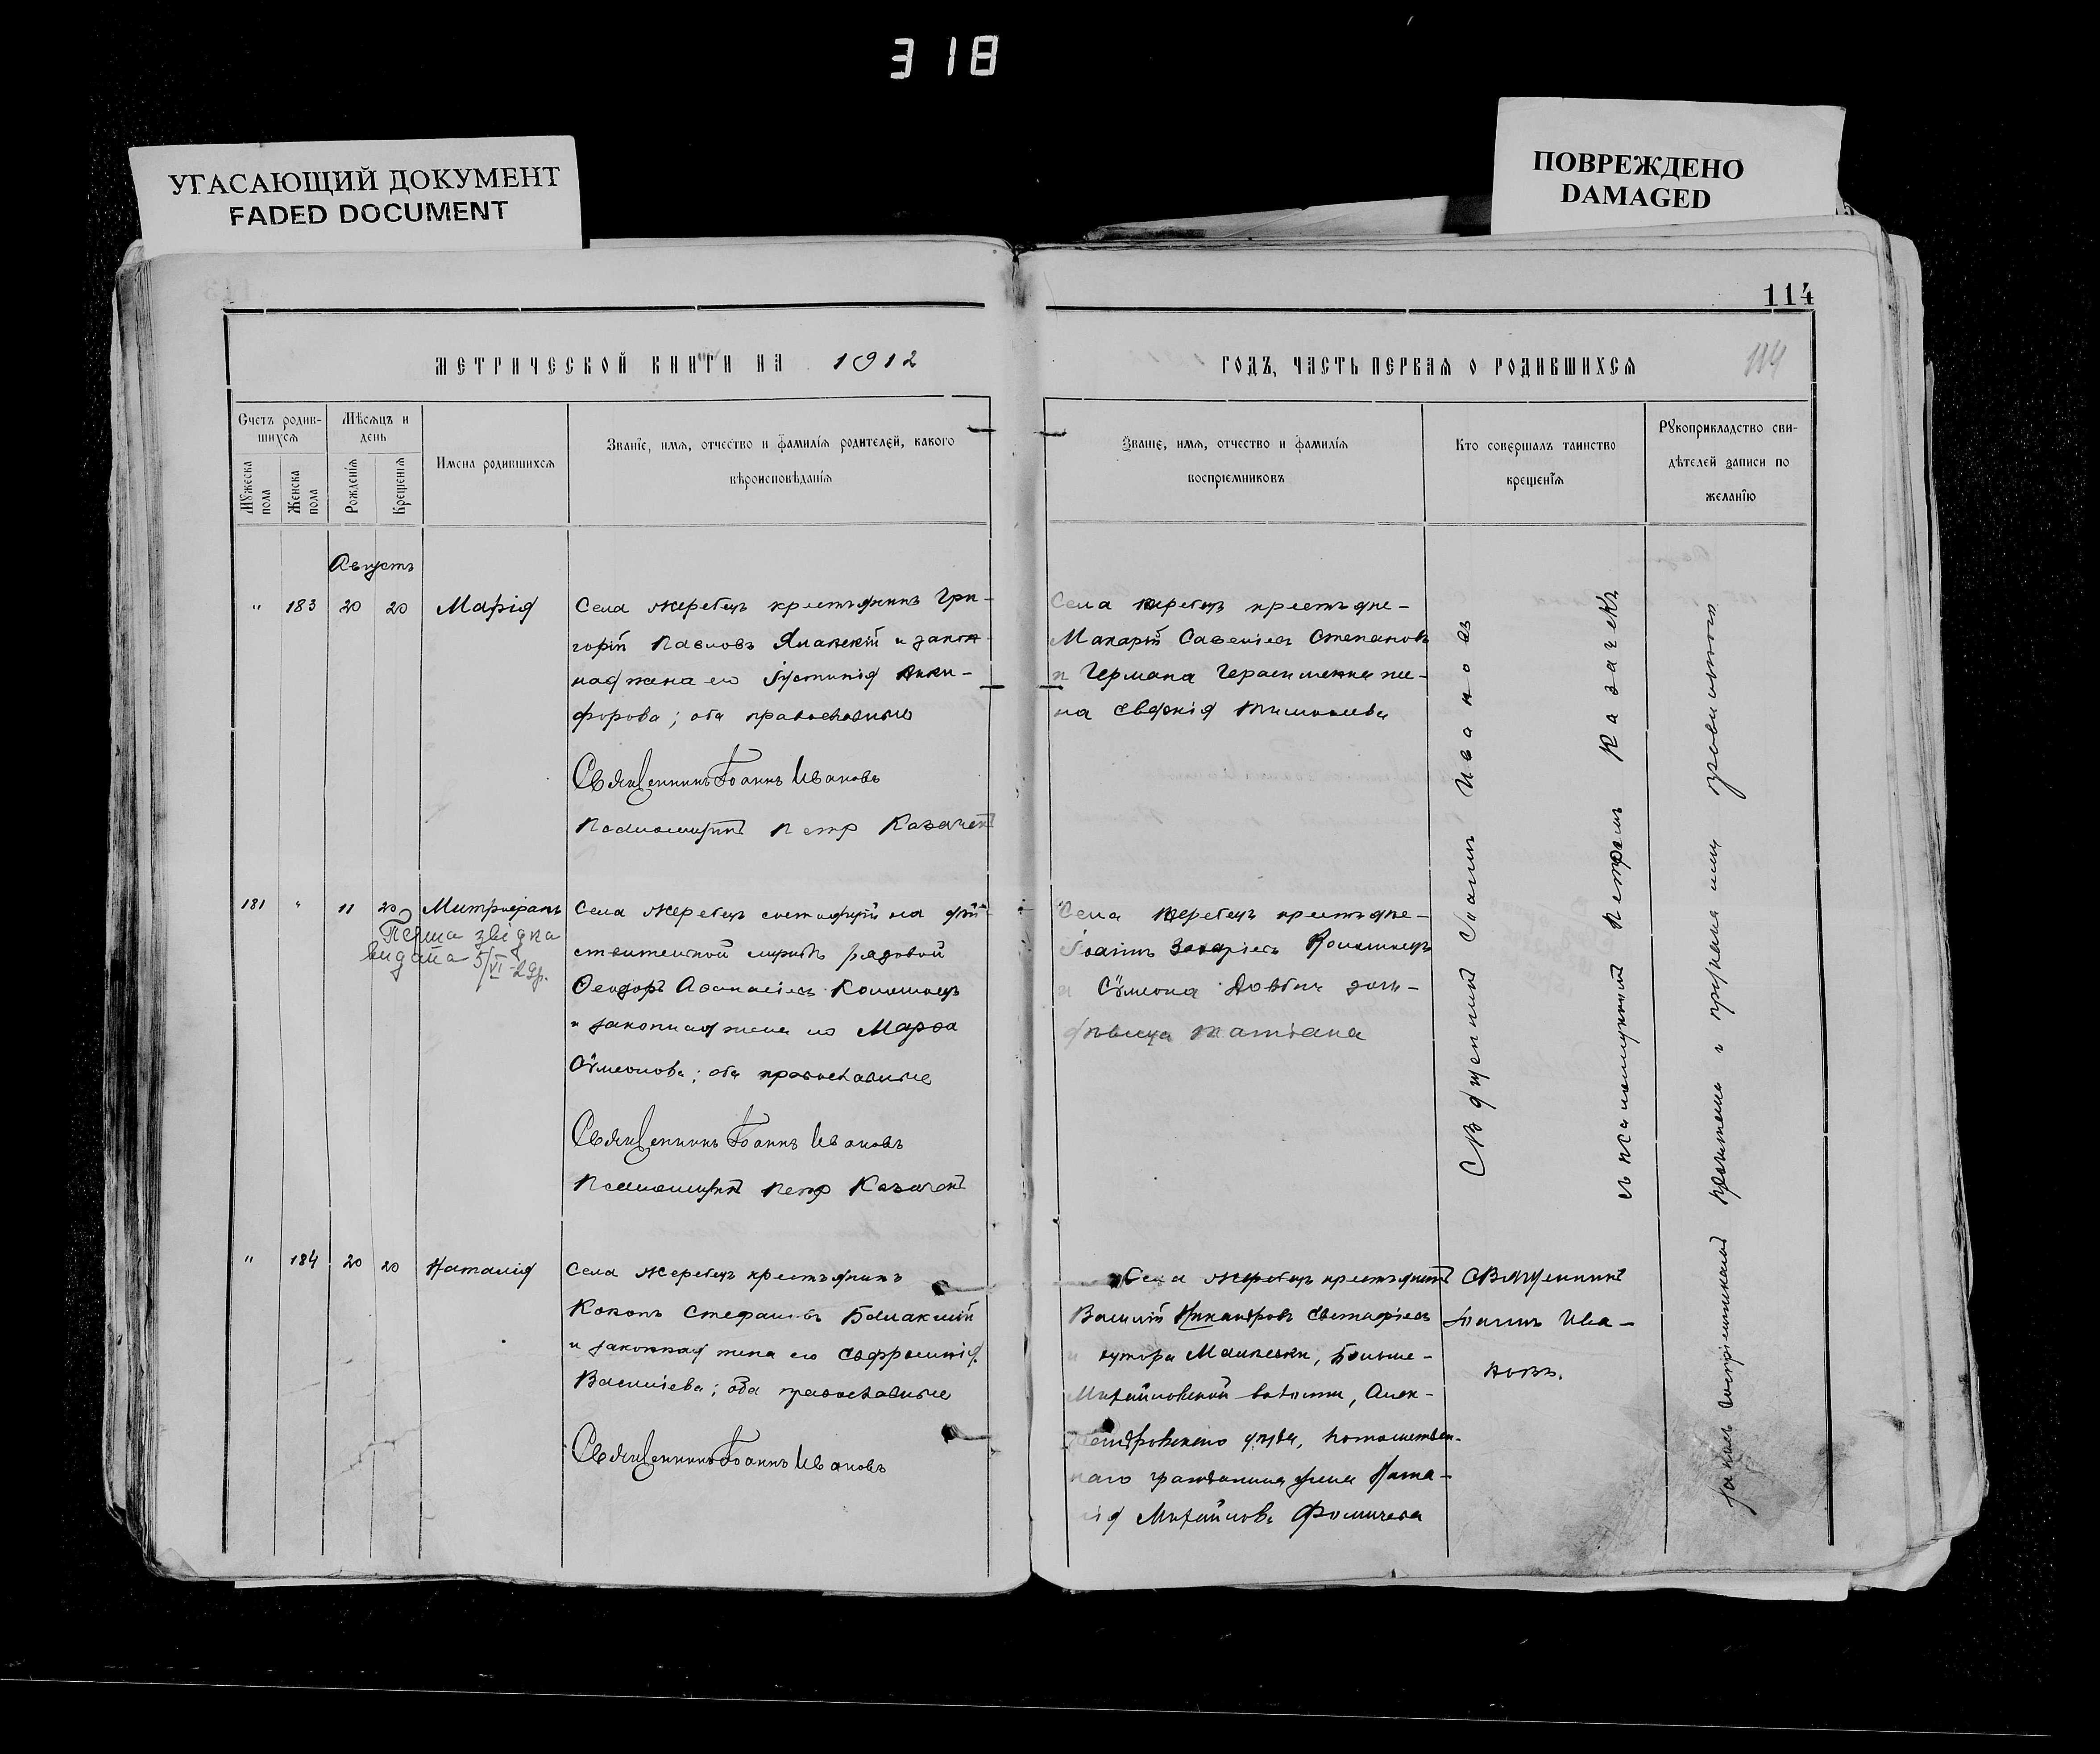 318
УГАСАЮЩИЙ ДОКУМЕНТ
FADED DOCUMENT
ПОВРЕЖДЕНО
DAMAGED
114
МЕТРИЧЕСКОЙ КНИГИ НА 1912
ГОДЪ, ЧАСТЬ ПЕРВАЯ О РОДИВШИХСЯ
114
Счетъ родив-
шихся
Мѣсяцъ и
день
Мужеска
пола
Женска
пола
Рожденія
Крещенія
Имена родившихся
Званіе, имя, отчество и фамилія родителей, какого
вѣроисповѣданія
Званіе, имя, отчество и фамилія
воспріемниковъ
Кто совершалъ таинство
крещенія
Рукоприкладство сви-
дѣтелей записи по
желанію
Августъ
" 183 20 20 Марія
Села Жеребецъ крестьянинъ Гри-
горій Павловъ и закон-
ная жена его Іустинія Ники-
форова; оба православные
Священникъ Іоаннъ Ивановъ
Псаломщикъ Петръ Казачекъ
Села Жеребецъ крестьяне-
Макарій Савеліевъ Степановъ
и Германа Герасименка же-
на Евфимія
181 " 11 20 Митрофанъ
Перша звідка
видана 5/VI
Села Жеребецъ состоящій на дѣй-
ствительной службѣ рядовой
Феодоръ Аѳанасіевъ Коломоецъ
и законная жена его Марѳа
Сѵмеонова; оба православные
Священникъ Іоаннъ Ивановъ
Псаломщикъ Петръ Казачекъ
Села Жеребецъ крестьяне-
Іоаннъ Захаріевъ Коломоецъ
и Сѵмеона дочь-
дѣвица Татіана
" 184 20 20 Наталія
Села Жеребецъ крестьянинъ
Кононъ Стефановъ
и законная жена его Евфросинія
Васильева; оба православные
Священникъ Іоаннъ Ивановъ
Села Жеребецъ крестьянинъ
Василій Никандровъ
и хутора Бѣльме-
Михайловской волости, Алек-
сандровскаго уѣзда, потомствен-
наго гражданина жена Ната-
лія Михайлова Фомичева
Священникъ
Іоаннъ Ива-
новъ.
Священникъ Іоаннъ Ивановъ
съ псаломщикомъ Петромъ Казачекъ